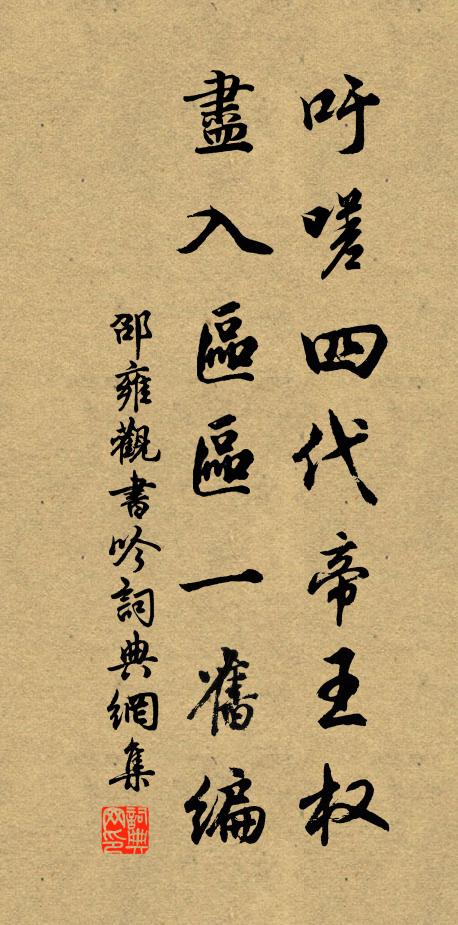 吁嗟四代帝王权
盡入區區一舊編
邵雍觀書吟詞典網集
詞典网印